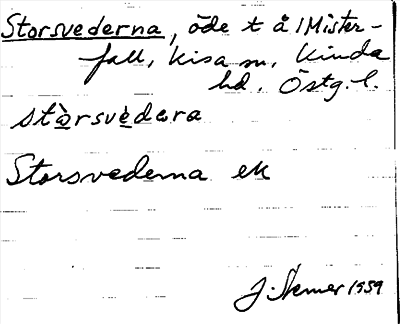 Storsvederna, öde t å 1 Mister-
fall, Kisa sn, Kinda
hd, Östg. l.
stàrsvèdara
Storsvederna ek
J. Stemer 1959